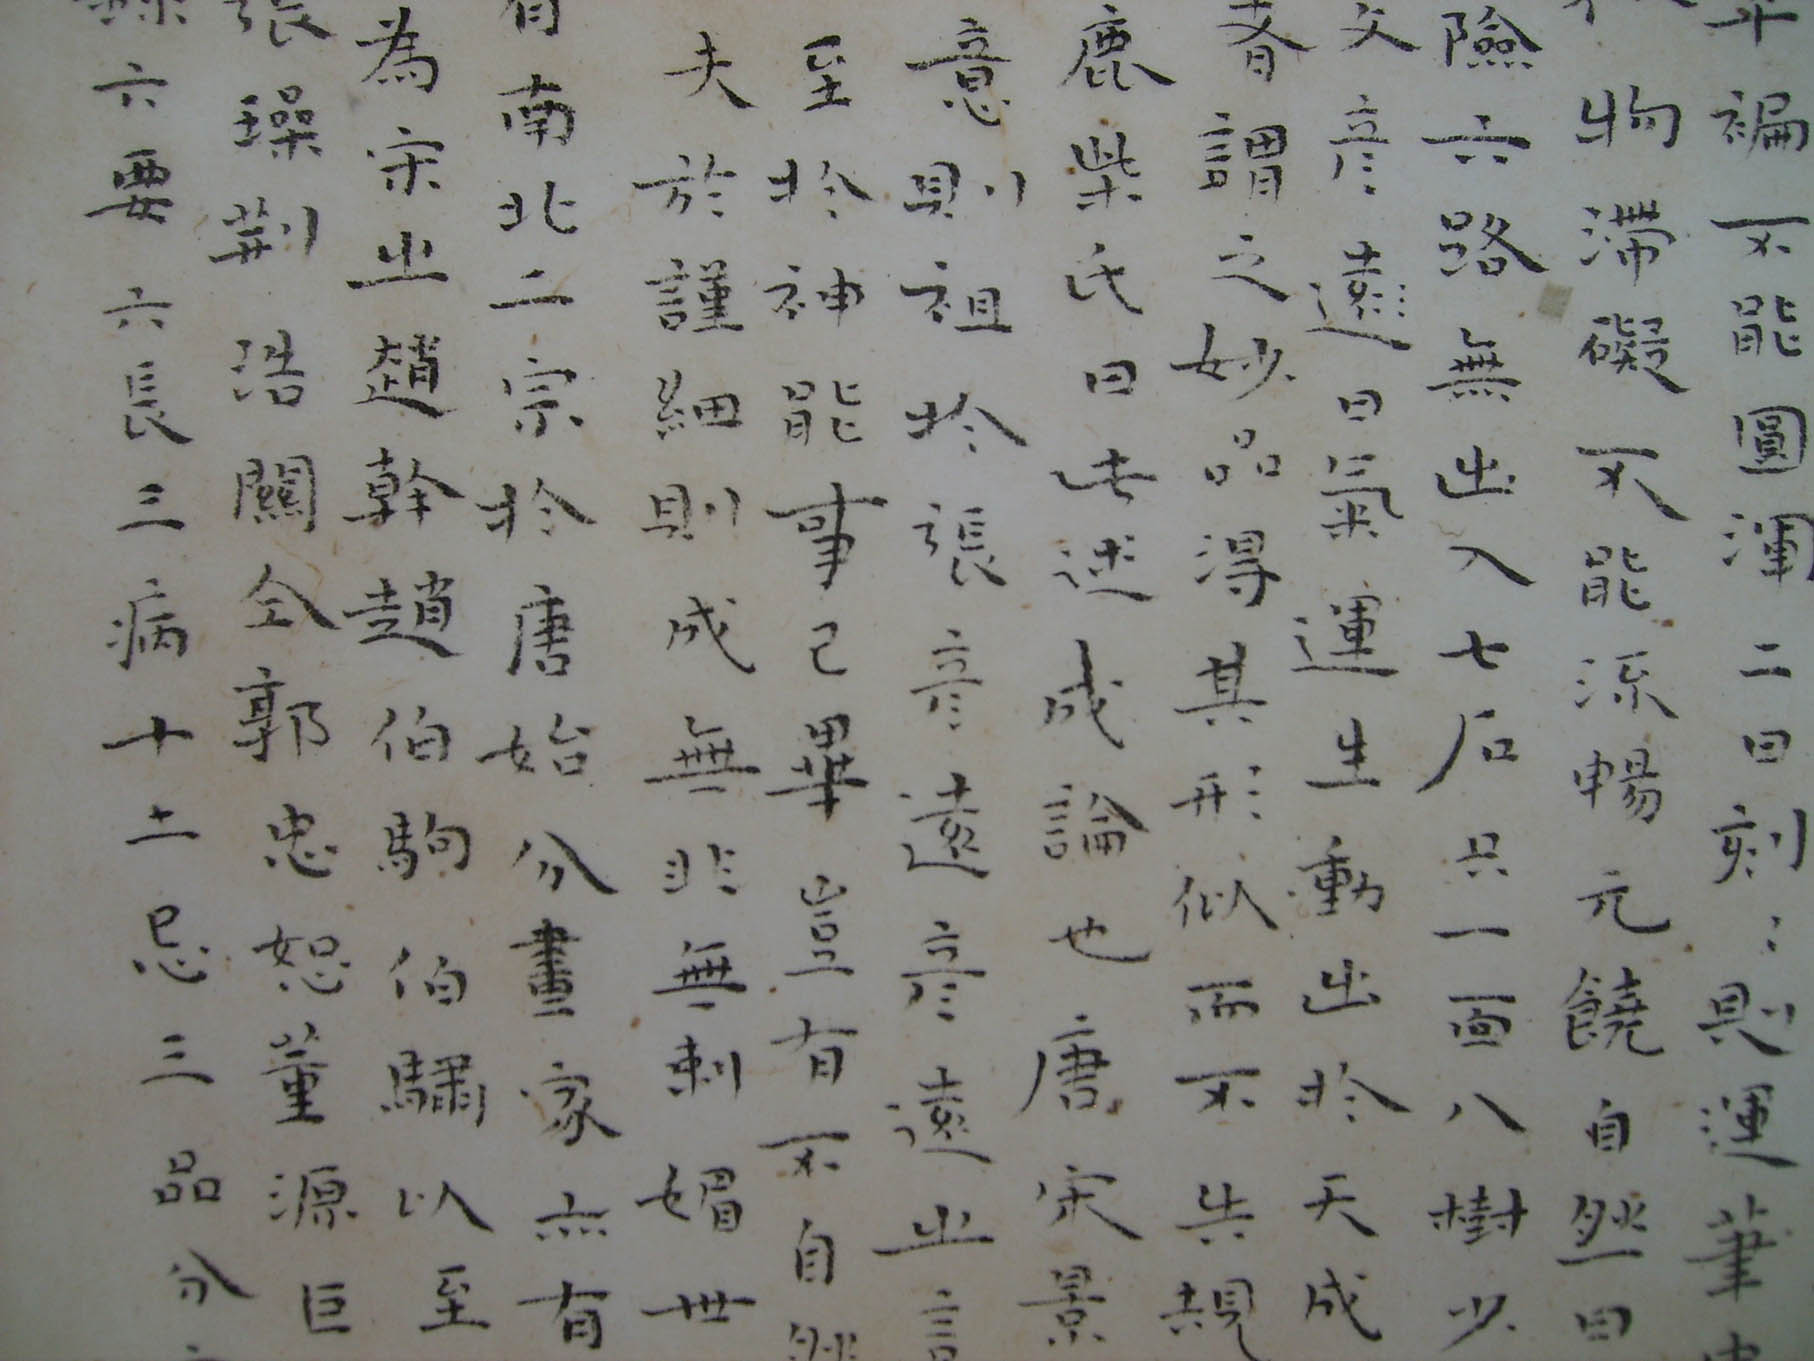 褊不能圓渾二曰刻：則運筆
物滯礙不能流暢元饒自然曰
險六路無出入七石只一面八樹少
文彦遠曰氣運生動出於天成
者謂之妙品得其形似而不失規
鹿柴氏曰此述成論也唐宋景
意則祖於張彦遠彦遠之言
至於神能事已畢豈有不自然
夫於謹細則成無非無刺媚世
有南北二宗於唐始分畫家亦有
為宋之趙幹趙伯駒伯驌以至
張璪荆浩關仝郭忠恕董源巨
六要六長三病十二忌三品分